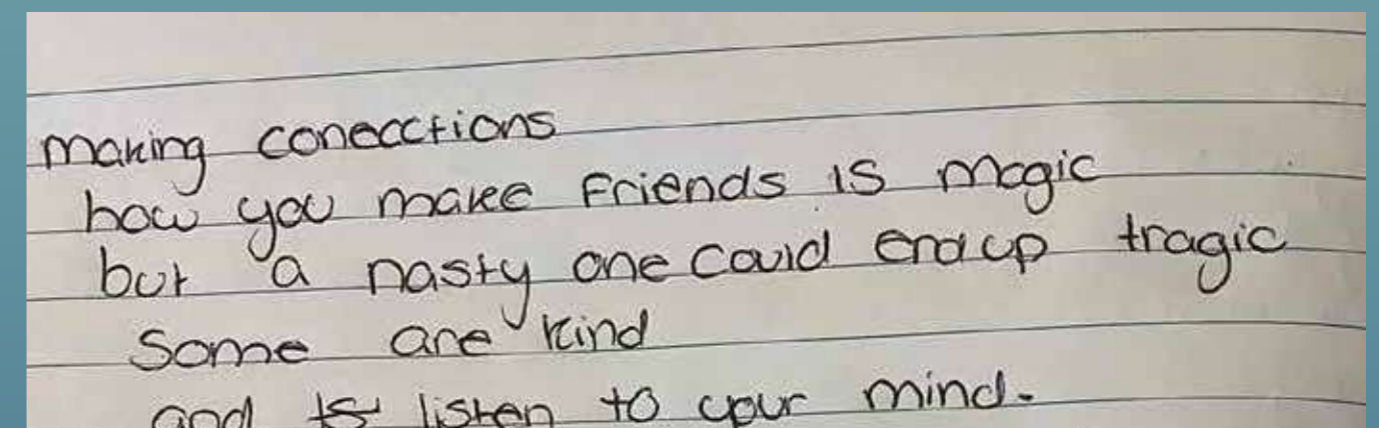 making conecctions
how you make Friends is magic
but a nasty one could end up tragic
Some are kind
and listen to your mind.